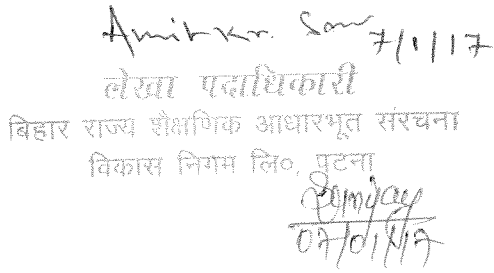 Amit Kr. 7/1/17
लेखा पदाधिकारी
बिहार राज्य शैक्षणिक आधारभूत संरचना
विकास निगम लि०, पटना
07/01/17